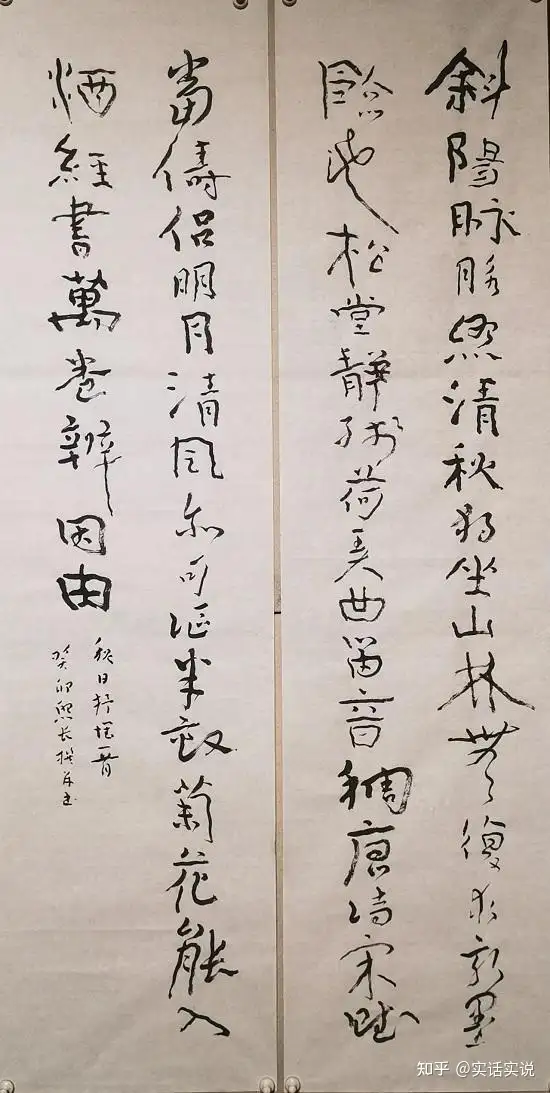 斜陽脉脉照清秋獨坐山林無復求墨
臨池松堂靜荷曲留音稠唐詩宋賦
當儔侶明月清風亦可謳半畝菊花能入
酒經書萬卷辨因由
秋日抒懷一首
癸卯熙长撰并书
知乎 @实话实说